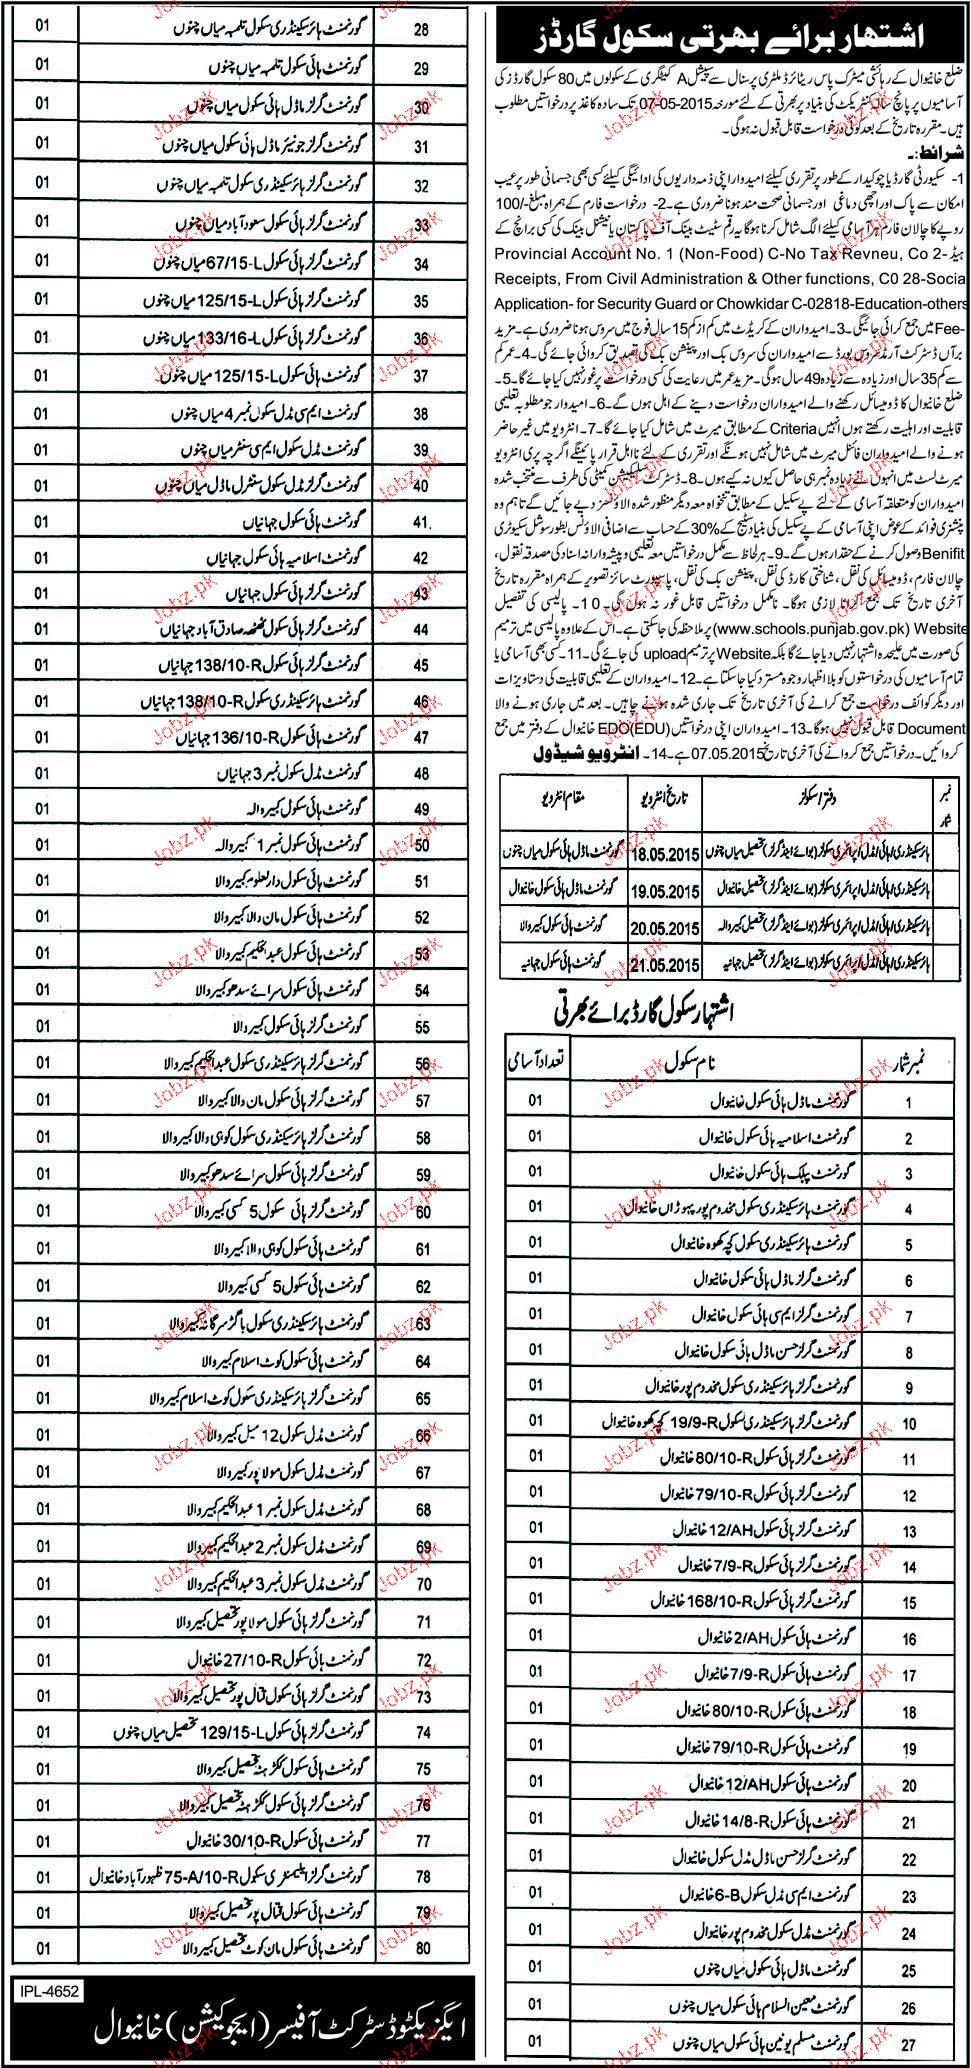 اشتہار برائے بھرتی سکول گارڈز
ضلع خانیوال کے رہائشی میٹرک پاس ریٹائرڈ ملٹری پرسنال سے سپیشل A کیٹیگری کے سکولوں میں 80 سکول گارڈز کی
آسامیوں پر پانچ سالہ کنٹریکٹ کی بنیاد پر بھرتی کے لئے مورخہ 07-05-2015 تک سادہ کاغذ پر درخواستیں مطلوب
ہیں۔ مقررہ تاریخ کے بعد کوئی درخواست قابل قبول نہ ہوگی۔
شرائط:۔
1- سکیورٹی گارڈ یا چوکیدار کے طور پر تقرری کیلئے امیدوار اپنی ذمہ داریوں کی ادائیگی کیلئے کسی بھی جسمانی طور پر عیب
امکان سے پاک اور اچھی دماغی اور جسمانی صحت مند ہونا ضروری ہے۔ 2- درخواست فارم کے ہمراہ مبلغ -/100
روپے کا چالان فارم ہر آسامی کیلئے الگ شامل کرنا ہوگا یہ رقم سٹیٹ بینک آف پاکستان یا نیشنل بینک کی کسی برانچ کے
ہیڈ Provincial Account No. 1 (Non-Food) C-No Tax Revneu, Co 2-
Receipts, From Civil Administration & Other functions, C0 28-Socia
Application- for Security Guard or Chowkidar C-02818-Education-others
Fee- میں جمع کرائی جائیگی۔ 3- امیدواران کے کریڈٹ میں کم از کم 15 سال فوج میں سروس ہونا ضروری ہے۔ مزید
برآں ڈسٹرکٹ آرمڈ سروس بورڈ سے امیدواران کی سروس بک اور پینشن بک کی تصدیق کروائی جائے گی۔ 4- عمر کم
سے کم 35 سال اور زیادہ سے زیادہ 49 سال ہوگی۔ مزید عمر میں رعایت کی کسی درخواست پر غور نہیں کیا جائے گا۔ 5-
ضلع خانیوال کا ڈومیسائل رکھنے والے امیدواران درخواست دینے کے اہل ہوں گے۔ 6- امیدوار جو مطلوبہ تعلیمی
قابلیت اور اہلیت رکھتے ہوں انہیں Criteria کے مطابق میرٹ میں شامل کیا جائے گا۔ 7- انٹرویو میں غیر حاضر
ہونے والے امیدواران فائنل میرٹ میں شامل نہیں ہونگے اور تقرری کے لئے نااہل قرار پائینگے اگرچہ پری انٹرویو
میرٹ لسٹ میں انہوں نے زیادہ نمبر ہی حاصل کیوں نہ کیے ہوں۔ 8- ڈسٹرکٹ سلیکشن کمیٹی کی طرف سے منتخب شدہ
امیدواران کو متعلقہ آسامی کے لئے پے سکیل کے مطابق تنخواہ معہ دیگر منظور شدہ الاؤنسز دیے جائیں گے تاہم وہ
پنشنری فوائد کے عوض اپنی آسامی کے پے سکیل کی بنیاد سٹیج کے 30% کے حساب سے اضافی الاؤنس بطور سوشل سکیورٹی
Benifit وصول کرنے کے حقدار ہوں گے۔ 9- ہر لحاظ سے مکمل درخواستیں معہ تعلیمی و پیشہ وارانہ اسناد کی مصدقہ نقول،
چالان فارم، ڈومیسائل کی نقل، شناختی کارڈ کی نقل، پینشن بک کی نقل، پاسپورٹ سائز تصویر کے ہمراہ مقررہ تاریخ
آخری تاریخ تک جمع کرانا لازمی ہوگا۔ نامکمل درخواستیں قابل غور نہ ہوں گی۔ 10- پالیسی کی تفصیل
Website (www.schools.punjab.gov.pk) پر ملاحظہ کی جاسکتی ہے۔ اس کے علاوہ پالیسی میں ترمیم
کی صورت میں علیحدہ اشتہار نہیں دیا جائے گا بلکہ Website پر ترمیم upload کی جائے گی۔ 11- کسی بھی آسامی یا
تمام آسامیوں کی درخواستوں کو بلا اظہار وجوہ مسترد کیا جاسکتا ہے۔ 12- امیدواران کے تعلیمی قابلیت کی دستاویزات
اور دیگر کوائف درخواست جمع کرانے کی آخری تاریخ تک جاری شدہ ہونے چاہیں۔ بعد میں جاری ہونے والا
Document قابل قبول نہیں ہوگا۔ 13- امیدواران اپنی درخواستیں EDO(EDU) خانیوال کے دفتر میں جمع
کروائیں۔ درخواستیں جمع کروانے کی آخری تاریخ 07.05.2015 ہے۔ 14- انٹرویو شیڈول
نمبر شمار دفتر/سکولز تاریخ انٹرویو مقام انٹرویو
ہائرسکینڈری/ہائی/مڈل/پرائمری سکولز (بوائے اینڈ گرلز) تحصیل میاں چنوں 18.05.2015 گورنمنٹ ماڈل ہائی سکول میاں چنوں
ہائرسکینڈری/ہائی/مڈل/پرائمری سکولز (بوائے اینڈ گرلز) تحصیل خانیوال 19.05.2015 گورنمنٹ ماڈل ہائی سکول خانیوال
ہائرسکینڈری/ہائی/مڈل/پرائمری سکولز (بوائے اینڈ گرلز) تحصیل کبیر والہ 20.05.2015 گورنمنٹ ہائی سکول کبیر والا
ہائرسکینڈری/ہائی/مڈل/پرائمری سکولز (بوائے اینڈ گرلز) تحصیل جہانیہ 21.05.2015 گورنمنٹ ہائی سکول جہانیہ
اشتہار سکول گارڈ برائے بھرتی
نمبر شمار نام سکول تعداد آسامی
1 گورنمنٹ ماڈل ہائی سکول خانیوال 01
2 گورنمنٹ اسلامیہ ہائی سکول خانیوال 01
3 گورنمنٹ پبلک ہائی سکول خانیوال 01
4 گورنمنٹ ہائرسکینڈری سکول مخدوم پور پہوڑاں خانیوال 01
5 گورنمنٹ ہائرسکینڈری سکول کچہ کھوہ خانیوال 01
6 گورنمنٹ گرلز ماڈل ہائی سکول خانیوال 01
7 گورنمنٹ گرلز ایم سی ہائی سکول خانیوال 01
8 گورنمنٹ گرلز حسن ماڈل ہائی سکول خانیوال 01
9 گورنمنٹ گرلز ہائرسکینڈری سکول مخدوم پور خانیوال 01
10 گورنمنٹ گرلز ہائرسکینڈری سکول 19/9-R کچہ کھوہ خانیوال 01
11 گورنمنٹ گرلز ہائی سکول 80/10-R خانیوال 01
12 گورنمنٹ گرلز ہائی سکول 79/10-R خانیوال 01
13 گورنمنٹ گرلز ہائی سکول 12/AH خانیوال 01
14 گورنمنٹ گرلز ہائی سکول 7/9-R خانیوال 01
15 گورنمنٹ گرلز ہائی سکول 168/10-R خانیوال 01
16 گورنمنٹ ہائی سکول 2/AH خانیوال 01
17 گورنمنٹ ہائی سکول 7/9-R خانیوال 01
18 گورنمنٹ ہائی سکول 80/10-R خانیوال 01
19 گورنمنٹ ہائی سکول 79/10-R خانیوال 01
20 گورنمنٹ ہائی سکول 12/AH خانیوال 01
21 گورنمنٹ ہائی سکول 14/8-R خانیوال 01
22 گورنمنٹ گرلز حسن ماڈل مڈل سکول خانیوال 01
23 گورنمنٹ ایم سی مڈل سکول 6-B خانیوال 01
24 گورنمنٹ مڈل سکول مخدوم پور خانیوال 01
25 گورنمنٹ ماڈل ہائی سکول میاں چنوں 01
26 گورنمنٹ معین السلام ہائی سکول میاں چنوں 01
27 گورنمنٹ مسلم یونین ہائی سکول میاں چنوں 01
28 گورنمنٹ ہائرسکینڈری سکول تلمبہ میاں چنوں 01
29 گورنمنٹ ہائی سکول تلمبہ میاں چنوں 01
30 گورنمنٹ گرلز ماڈل ہائی سکول میاں چنوں 01
31 گورنمنٹ گرلز جونیئر ماڈل ہائی سکول میاں چنوں 01
32 گورنمنٹ گرلز ہائرسکینڈری سکول تلمبہ میاں چنوں 01
33 گورنمنٹ گرلز ہائی سکول سعود آباد میاں چنوں 01
34 گورنمنٹ گرلز ہائی سکول 67/15-L میاں چنوں 01
35 گورنمنٹ گرلز ہائی سکول 125/15-L میاں چنوں 01
36 گورنمنٹ گرلز ہائی سکول 133/16-L میاں چنوں 01
37 گورنمنٹ گرلز ہائی سکول 125/15-L میاں چنوں 01
38 گورنمنٹ ایم سی مڈل سکول نمبر 4 میاں چنوں 01
39 گورنمنٹ مڈل سکول ایم سی سنٹر میاں چنوں 01
40 گورنمنٹ گرلز مڈل سکول سنٹرل ماڈل میاں چنوں 01
41. گورنمنٹ ہائی سکول جہانیاں 01
42 گورنمنٹ اسلامیہ ہائی سکول جہانیاں 01
43 گورنمنٹ گرلز ہائی سکول جہانیاں 01
44 گورنمنٹ گرلز ہائی سکول ٹھٹھہ صادق آباد جہانیاں 01
45 گورنمنٹ گرلز ہائی سکول 138/10-R جہانیاں 01
46 گورنمنٹ ہائرسکینڈری سکول 138/10-R جہانیاں 01
47 گورنمنٹ ہائی سکول 136/10-R جہانیاں 01
48 گورنمنٹ مڈل سکول نمبر 3 جہانیاں 01
49 گورنمنٹ ہائی سکول کبیر والہ 01
50 گورنمنٹ ہائی سکول نمبر 1 کبیر والہ 01
51 گورنمنٹ ہائی سکول دارلعلوم کبیر والا 01
52 گورنمنٹ ہائی سکول مان والا کبیر والا 01
53 گورنمنٹ ہائی سکول عبدالحکیم کبیر والا 01
54 گورنمنٹ ہائی سکول سرائے سدھو کبیر والا 01
55 گورنمنٹ گرلز ہائی سکول کبیر والا 01
56 گورنمنٹ گرلز ہائرسکینڈری سکول عبدالحکیم کبیر والا 01
57 گورنمنٹ گرلز ہائی سکول مان والا کبیر والا 01
58 گورنمنٹ گرلز ہائرسکینڈری سکول کوہی والا کبیر والا 01
59 گورنمنٹ گرلز ہائی سکول سرائے سدھو کبیر والا 01
60 گورنمنٹ گرلز ہائی سکول 5 کسی کبیر والا 01
61 گورنمنٹ ہائی سکول کوہی والا کبیر والا 01
62 گورنمنٹ ہائی سکول 5 کسی کبیر والا 01
63 گورنمنٹ ہائرسکینڈری سکول باگڑ سرگانہ کبیر والا 01
64 گورنمنٹ ہائی سکول کوٹ اسلام کبیر والا 01
65 گورنمنٹ گرلز ہائرسکینڈری سکول کوٹ اسلام کبیر والا 01
66 گورنمنٹ مڈل سکول 12 میل کبیر والا 01
67 گورنمنٹ مڈل سکول مولا پور کبیر والا 01
68 گورنمنٹ مڈل سکول نمبر 1 عبدالحکیم کبیر والا 01
69 گورنمنٹ مڈل سکول نمبر 2 عبدالحکیم کبیر والا 01
70 گورنمنٹ مڈل سکول نمبر 3 عبدالحکیم کبیر والا 01
71 گورنمنٹ گرلز ہائی سکول مولا پور تحصیل کبیر والا 01
72 گورنمنٹ ہائی سکول 27/10-R خانیوال 01
73 گورنمنٹ گرلز ہائی سکول قتال پور تحصیل کبیر والا 01
74 گورنمنٹ گرلز ہائی سکول 129/15-L تحصیل میاں چنوں 01
75 گورنمنٹ ہائی سکول ککڑ ہٹہ تحصیل کبیر والا 01
76 گورنمنٹ گرلز ہائی سکول ککڑ ہٹہ تحصیل کبیر والا 01
77 گورنمنٹ ہائی سکول 30/10-R خانیوال 01
78 گورنمنٹ گرلز ایلیمنٹری سکول 75-A/10-R ظہور آباد خانیوال 01
79 گورنمنٹ ہائی سکول قتال پور تحصیل کبیر والا 01
80 گورنمنٹ ہائی سکول مان کوٹ تحصیل کبیر والا 01
IPL-4652
ایگزیکٹو ڈسٹرکٹ آفیسر (ایجوکیشن) خانیوال